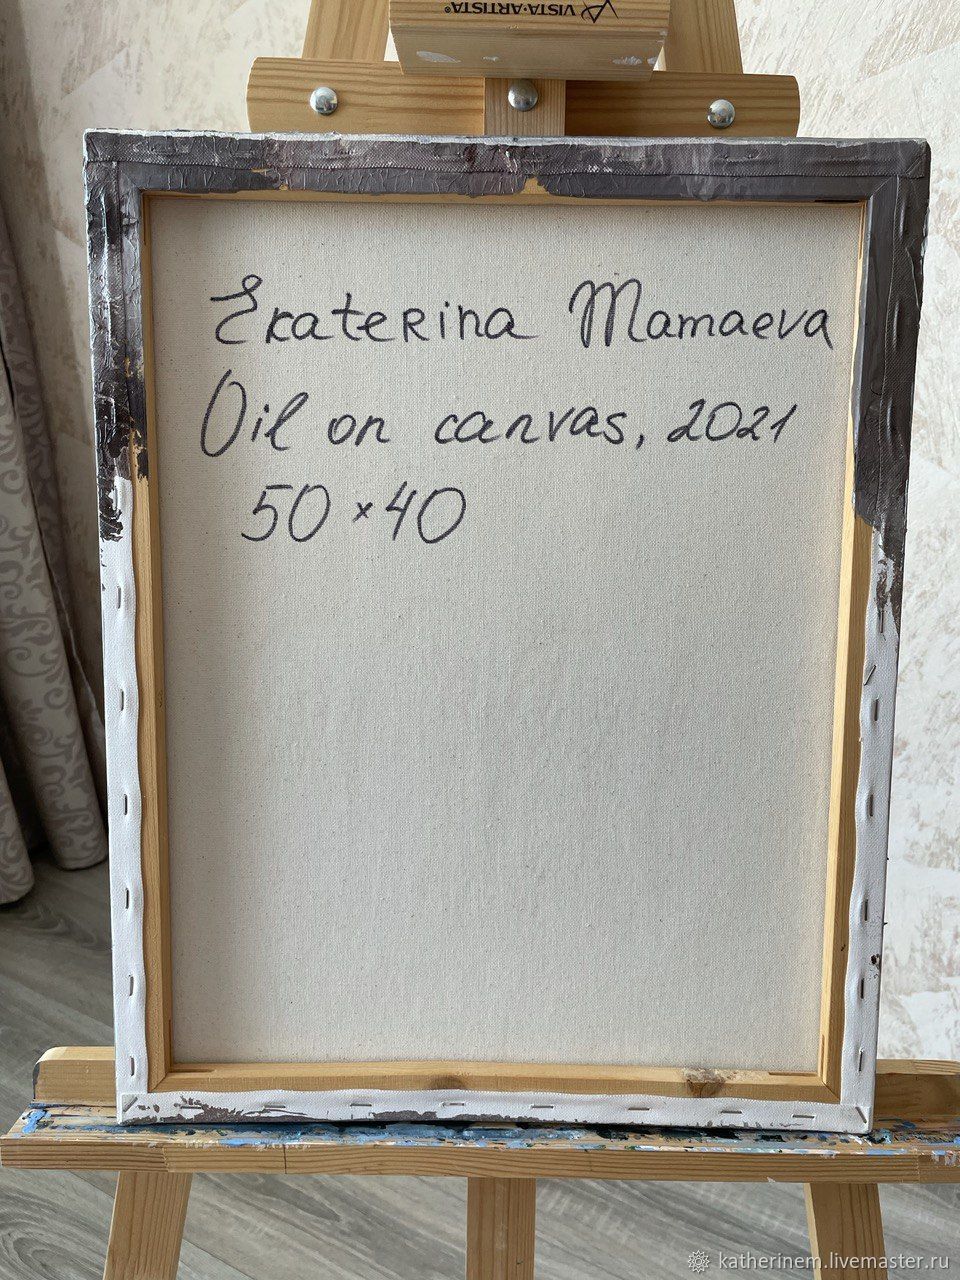 VISTA-ARTISTA®
Ekaterina Mamaeva
Oil on canvas, 2021
50 × 40
katherinem.livemaster.ru